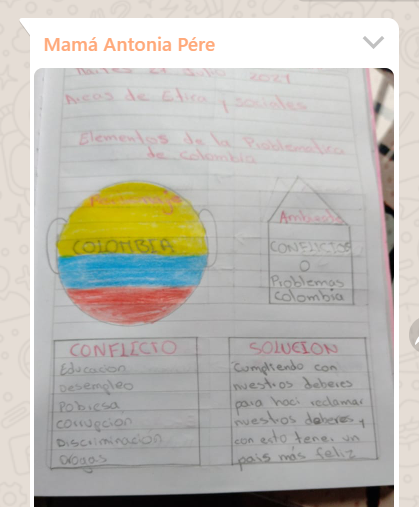 Mamá Antonia Pére
21 Julio 2021
Areas de Etica y sociales
Elementos de la Problematica
de Colombia
Personaje
COLOMBIA
Ambiente
CONFLICTOS
O
Problemas
Colombia
CONFLICTO
Educacion
Desempleo
Pobresa
corrupcion
Discriminacion
Drogas
SOLUCION
Cumpliendo con
nuestros deberes
para haci reclamar
nuestros deberes y
con esto tener un
pais más feliz